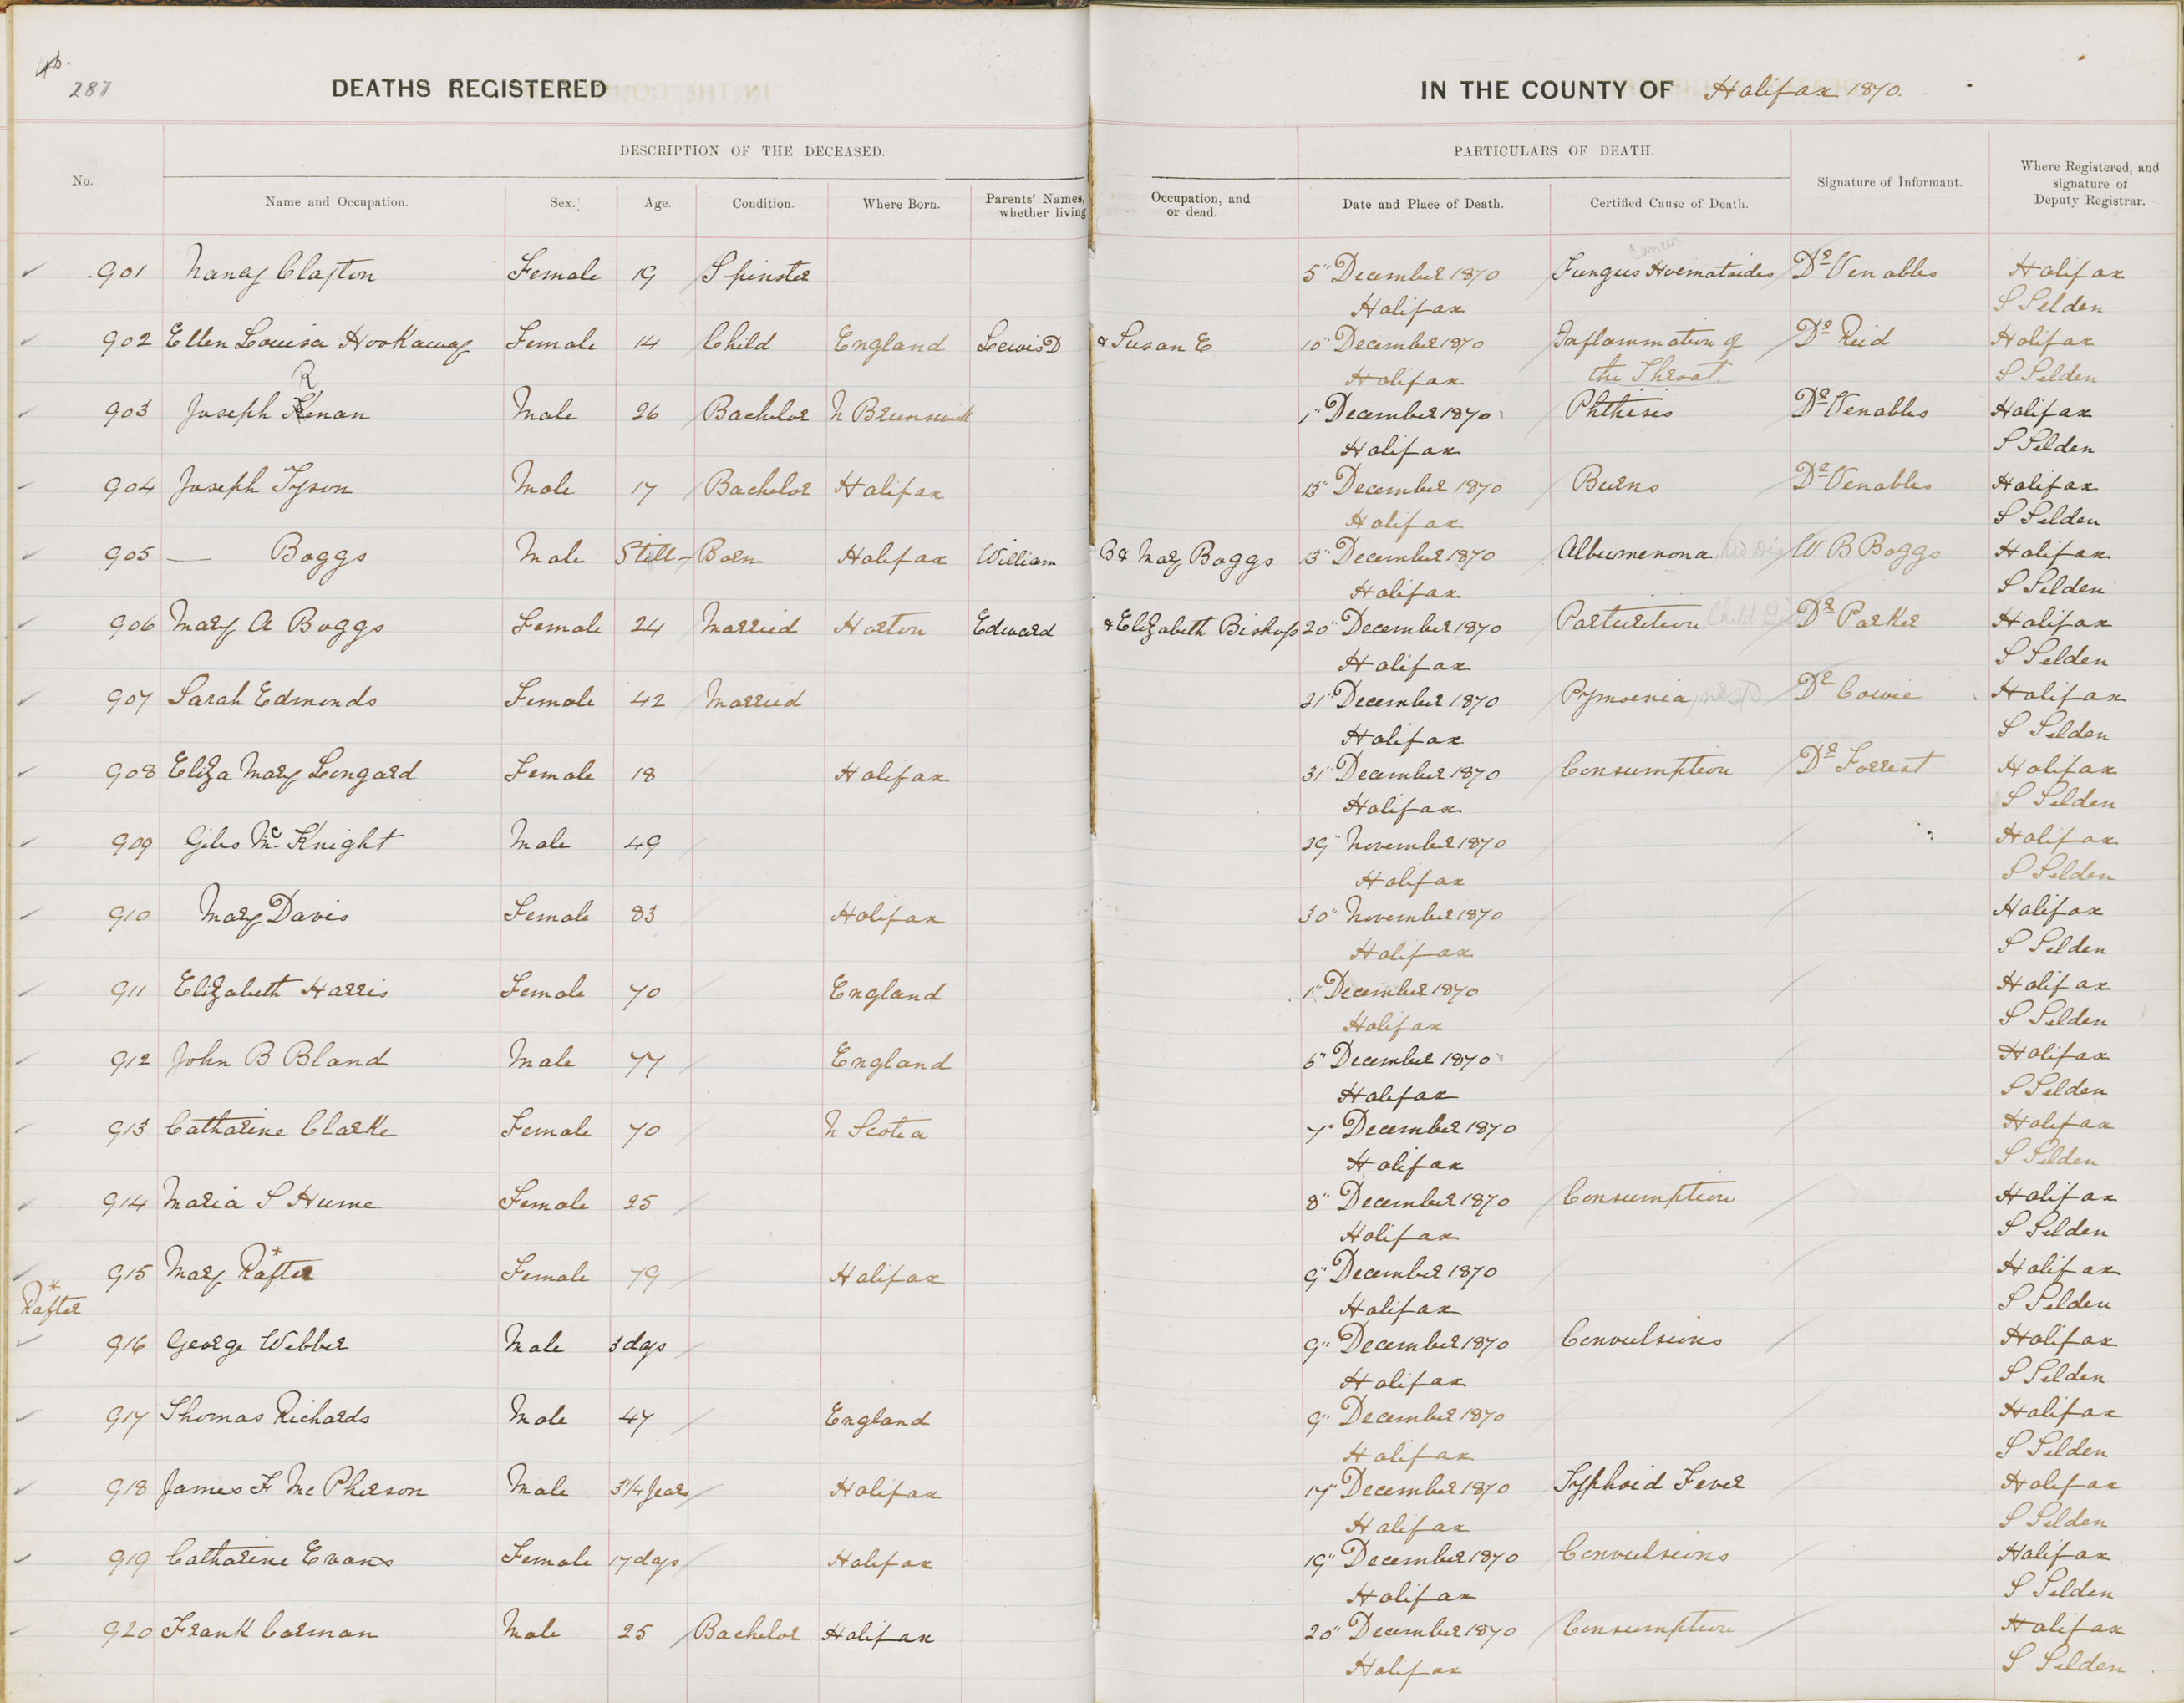 287
DEATHS REGISTERED IN THE COUNTY OF Halifax 1870.
DESCRIPTION OF THE DECEASED. PARTICULARS OF DEATH.
No. Name and Occupation. Sex. Age. Condition. Where Born. Parents' Names, whether living Occupation, and or dead. Date and Place of Death. Certified Cause of Death. Signature of Informant. Where Registered, and signature of Deputy Registrar.
Cancer
901 Nancy Clayton Female 19 Spinster 5" December 1870 Fungus Hoematoides Dr Venables Halifax
Halifax S Selden
902 Ellen Louisa Hookaway Female 14 Child England Lewis D & Susan E 10" December 1870 Inflammation of Dr Reid Halifax
R Halifax the Throat S Selden
903 Joseph Kenan Male 26 Bachelor N Brunswick 1" December 1870 Phthisis Dr Venables Halifax
Halifax S Selden
904 Joseph Tyson Male 17 Bachelor Halifax 13" December 1870 Burns Dr Venables Halifax
Halifax S Selden
905 — Boggs Male Still-Born Halifax William B & Mary Boggs 13" December 1870 Albumenona W B Boggs Halifax
Halifax S Selden
906 Mary A Boggs Female 24 Married Horton Edward & Elizabeth Bishop 20" December 1870 Parturition Child Dr Parker Halifax
Halifax S Selden
907 Sarah Edmonds Female 42 Married 21" December 1870 Pymoenia Dr Cowie Halifax
Halifax S Selden
908 Eliza Mary Longard Female 18 Halifax 31" December 1870 Consumption Dr Forrest Halifax
Halifax S Selden
909 Giles Mc Knight Male 49 29" November 1870 Halifax
Halifax S Selden
910 Mary Davis Female 83 Halifax 30" November 1870 Halifax
Halifax S Selden
911 Elizabeth Harris Female 70 England 1" December 1870 Halifax
Halifax S Selden
912 John B Bland Male 77 England 6" December 1870 Halifax
Halifax S Selden
913 Catharine Clarke Female 70 N Scotia 7" December 1870 Halifax
Halifax S Selden
914 Maria S Hume Female 25 8" December 1870 Consumption Halifax
Halifax S Selden
915 Mary Rafter* Female 79 Halifax 9" December 1870 Halifax
* Rafter Halifax S Selden
916 George Webber Male 3 dys 9" December 1870 Convulsions Halifax
Halifax S Selden
917 Thomas Richards Male 47 England 9" December 1870 Halifax
Halifax S Selden
918 James F Mc Pherson Male 3 1/4 years Halifax 17" December 1870 Typhoid Fever Halifax
Halifax S Selden
919 Catharine Evans Female 17 dys Halifax 19" December 1870 Convulsions Halifax
Halifax S Selden
920 Frank Corman Male 25 Bachelor Halifax 20" December 1870 Consumption Halifax
Halifax S Selden